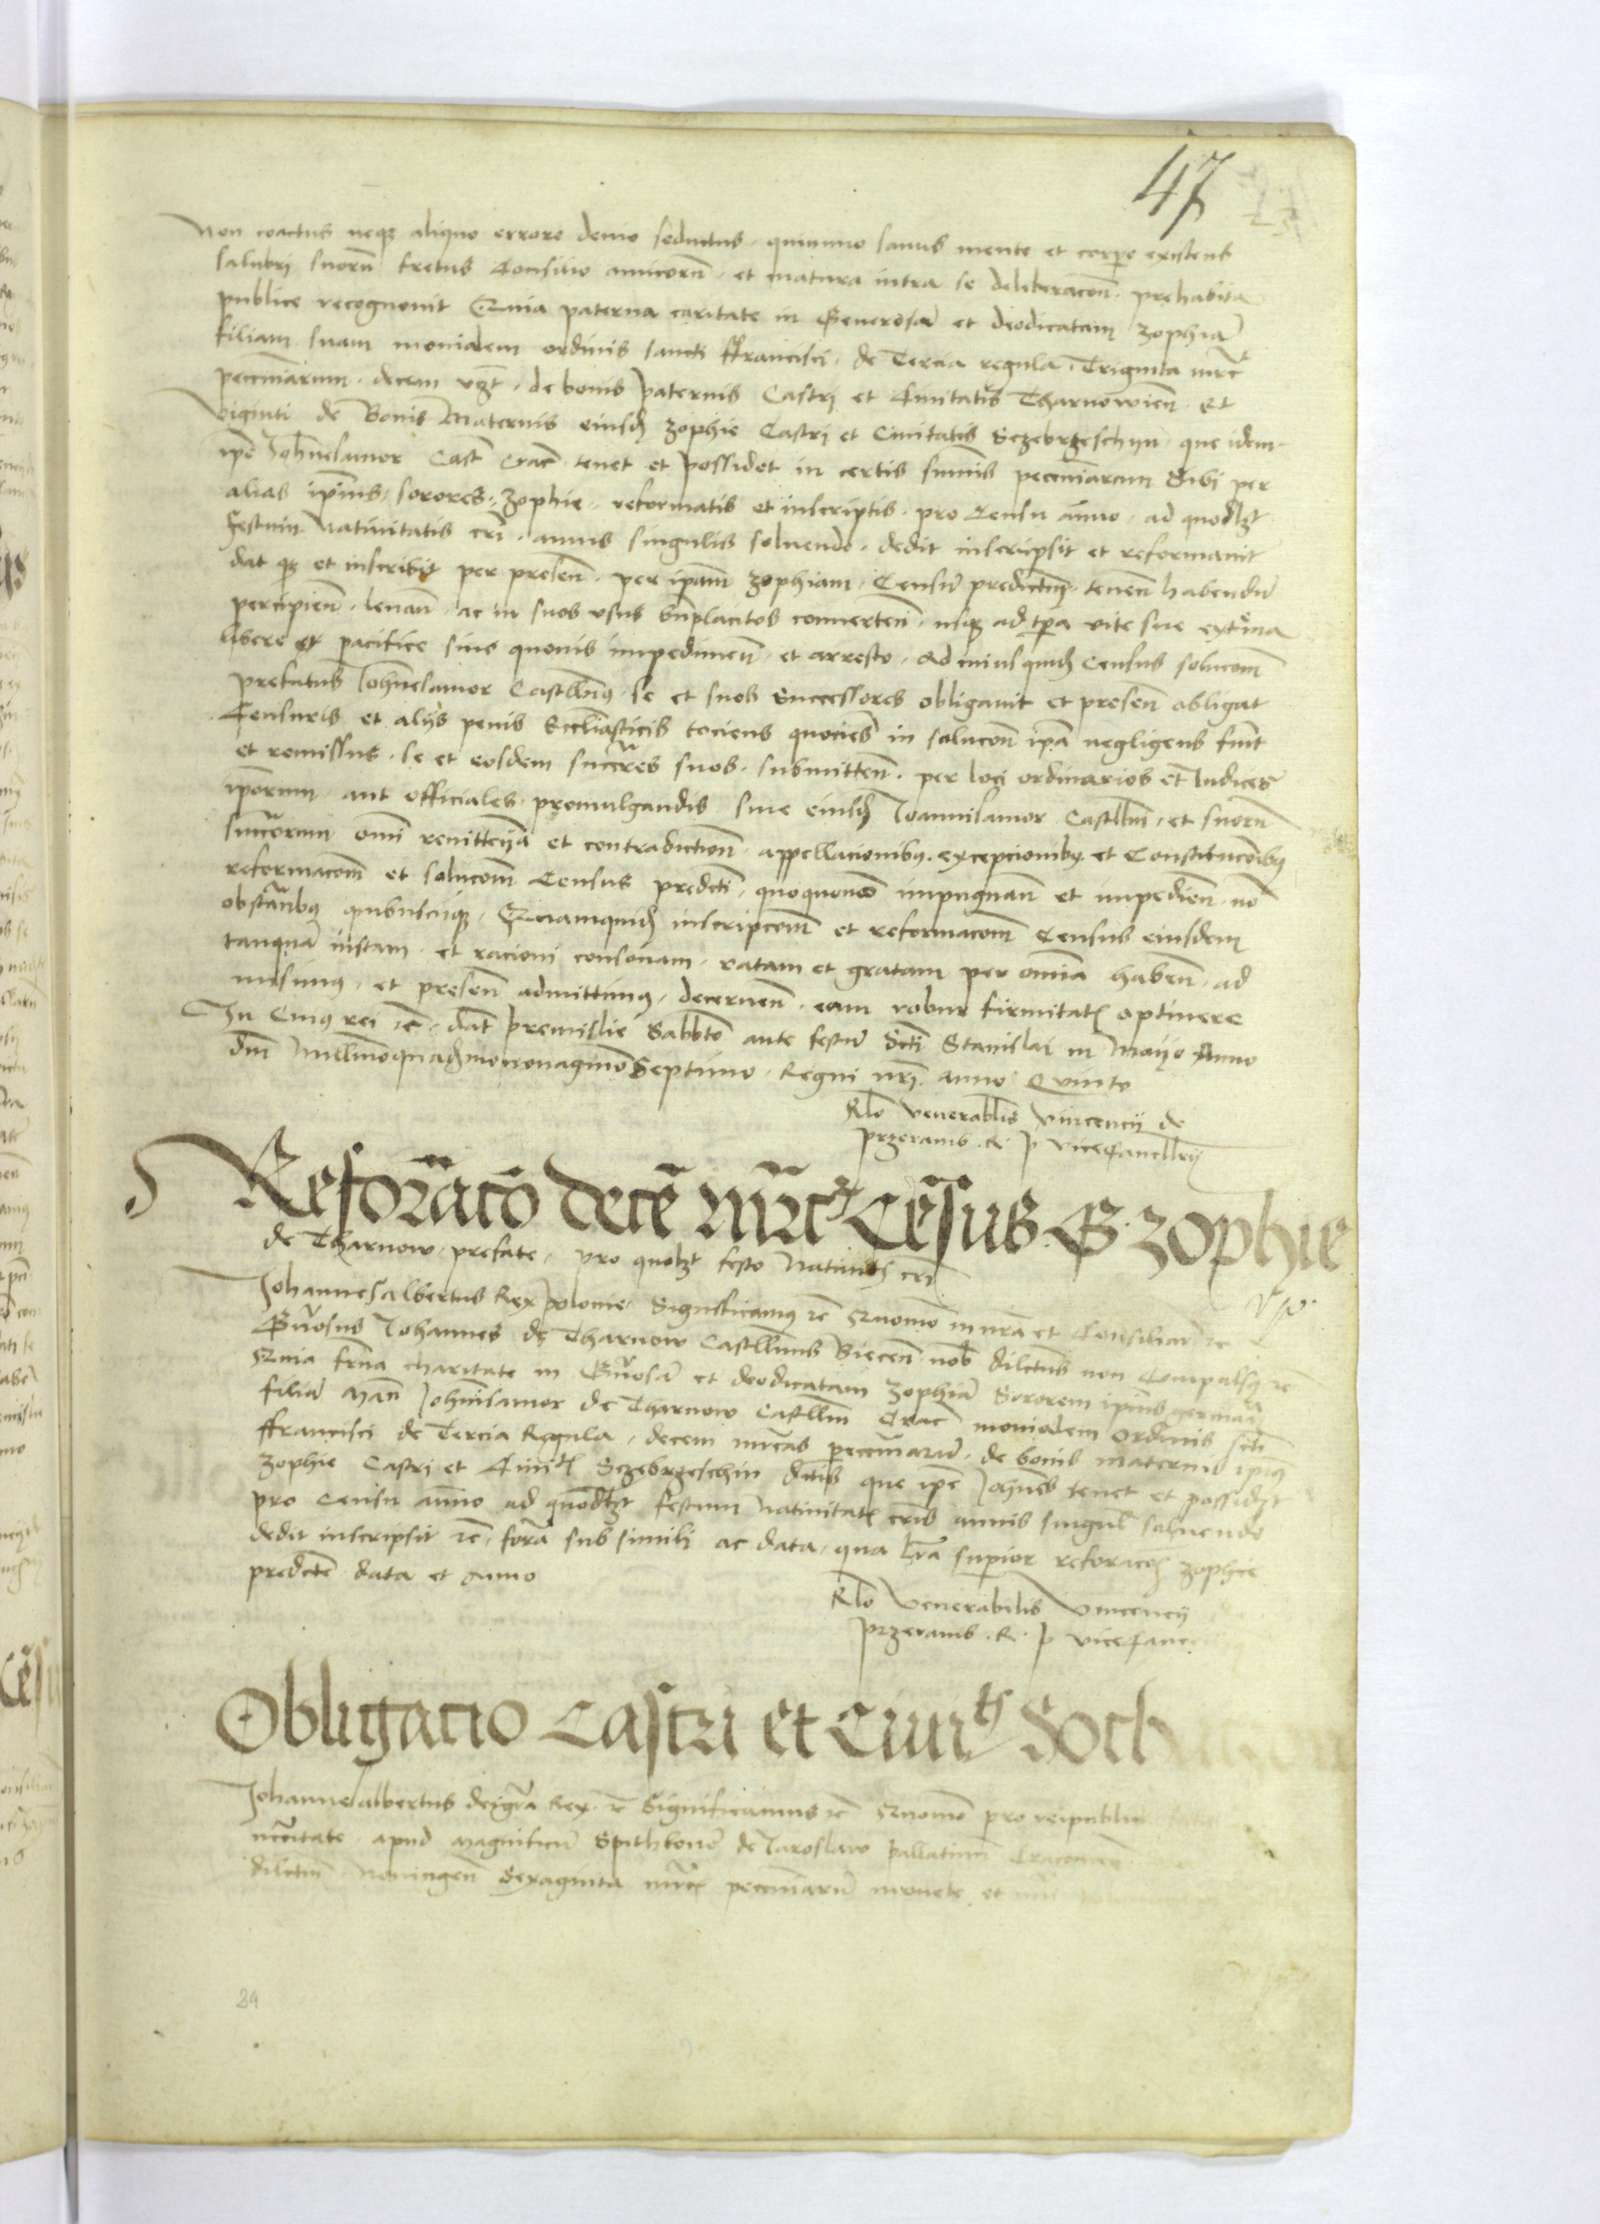 47
Non coactus neqz aliquo errore devio seductus quinimo sanus mente et corpore existens
salubri suorum fretus Consilio amicorum et matura intra se deliberacone prehabita
publice recognovit Quia paterna caritate in Generosam et deodicatam Zophiam
filiam suam monialem ordinis sancti ffrancisci de Tercia regula Triginta mrcas
pecuniarum decem vzt de bonis paternis Castri et Civitatis Tharnowien Et
viginti de Bonis Maternis eiusdem Zophie Castri et Civitatis Sczebrzeschyn que idem
ipe Johannes Amor Cast Crac tenet et possidet in certis summis pecuniarum Sibi per
alias ipius sorores Zophie reformatis et inscriptis pro Censu annuo ad quodlzt
festum Nativitatis cri annis singulis solvendo dedit inscripsit et reformavit
dat qz et inscribit per presen per ipam Zophiam Censum predictum tenen habendum
percipien levan ac in suos usus bnplacitos converten usqz ad tpa vite sue extrema
libere et pacifice sine quovis impedimen et arresto Ad cuius quidem Census solucom
prefatus Johannes Amor Castllnus se et suos Successores obligavit et presen obligat
Censuris et aliis penis Eccliasticis tociens quociens in solucone ipa negligens fuit
et remissus se et eosdem succres suos submitten per loci ordinarios et Iudices
iporum aut officiales promulgandis sine eiusdem Joannis Amor Castllni et suorum
succrorum omi renitteya et contradictione appellacionibus excepcionibus et Constitucoibus
reformacom et solucom Census predcti quoquomodo impugnan et impedien non
obstantibus quibuscuqz Quamquidem inscripcom et reformacom Census eiusdem
tanquam iustam et racioni consonam ratam et gratam per omnia haben ad
misimus et presen admittimus decernen eam robur firmitatis optinere
In Cuius rei rc dat premislie Sabbto ante festum Scti Stanislai in Mayo Anno
Dm Millmoquadrmononagmo Septimo Regni nri anno Quinto
Rlo Venerablis Vincencii de
przeramb R P Vicecancllrii
Reformaco dece mrcz Cesus G Zophie
de Tharnow prefate pro quolzt festo nativitatis cri
Johannes Albertus Rex polonie Significamus rc Quomo in nra et Consiliar rc
Gnosus Johannes de Tharnow Castllnus Biecen nob dilctus non Compulsus rc
Quia frna charitate in Gnosam et deodicatam Zophiam Sororem ipius germana
filiam Man Johnis Amor de Tharnow Castllni Crac monialem Ordinis scti
ffrancisci de Tercia Regula decem mrcas pecuniarum de bonis maternis ipius
Zophie Castri et Civitatis Sczebrzeschin dctis que ipe Johnes tenet et possidzt
pro Censu annuo ad quodlzt festum Nativitatis cris annis singul solvendo
dedit inscripsit rc forma sub simili ac data qua lra superior reformacois Zophie
predcte data et Anno
Rlo Venerabilis Vincencii
przeramb R P Vicecanc
Obligacio Castri et Civitts Soch
Johannes Albertus dei gra Rex rc Significamus rc Quomo pro reipublice
necessitate apud Magnificum Spithkonem de Jaroslaw pallatinum Cracovien
dilctum Noningen Sexaginta mrcas pecuniarum monete et
84